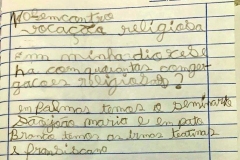 No encontro
vocação religiosa
Em minha diocese
ha com quantas congre
gacoes religiosas?
en palmas temos o seminario
São joão maria e en pato
Branco temos as irmas teatinas
e fransiscano